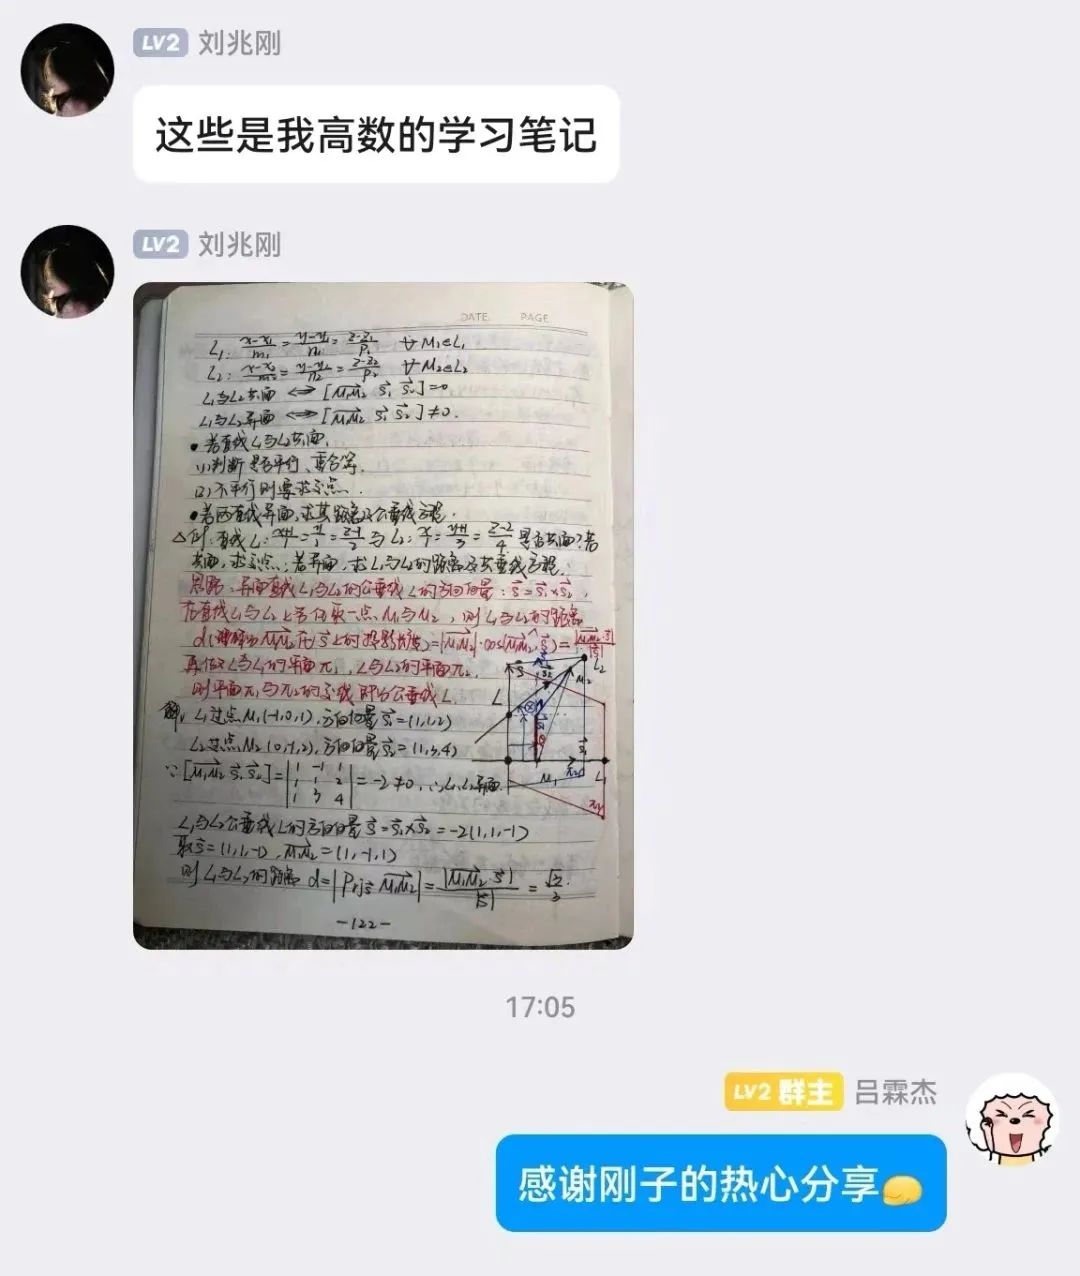 LV2 刘兆刚
这些是我高数的学习笔记
LV2 刘兆刚
DATE PAGE
L₁: (x-x₁)/m₁ = (y-y₁)/n₁ = (z-z₁)/p₁ ∀ M₁∈L₁
L₂: (x-x₂)/m₂ = (y-y₂)/n₂ = (z-z₂)/p₂ ∀ M₂∈L₂
L₁与L₂共面 ⟺ [M₁M₂ s₁ s₂]=0
L₁与L₂异面 ⟺ [M₁M₂ s₁ s₂]≠0.
•若直线L₁与L₂共面,
(1)判断是否平行、重合等.
(2)不平行则要求交点.
•若两直线异面,求其距离及公垂线方程.
△例:直线L₁: (x+1)/1 = y/1 = (z-1)/2 与L₂: x/1 = (y+1)/3 = (z-2)/4 是否共面?若
共面,求交点;若异面,求L₁与L₂的距离及公垂线方程.
思路:异面直线L₁与L₂的公垂线L的方向向量: s=s₁×s₂,
在直线L₁与L₂上各任取一点M₁与M₂,则L₁与L₂的距离
d(理解为M₁M₂在s上的投影长度)=|M₁M₂|·cos(M₁M₂,s)=|M₁M₂·s|/|s|
再做L与L₁的平面π₁,L与L₂的平面π₂,
则平面π₁与π₂的交线即为公垂线L.
解:L₁过点M₁(-1,0,1),方向向量s₁=(1,1,2)
L₂过点M₂(0,-1,2),方向向量s₂=(1,3,4)
∵[M₁M₂ s₁ s₂]=
1 -1 1
1 1 2
1 3 4
=-2≠0,∴L₁,L₂异面.
L₁与L₂公垂线L的方向向量s=s₁×s₂=-2(1,1,-1)
取s=(1,1,-1),M₁M₂=(1,-1,1)
则L₁与L₂的距离 d=|Prjs M₁M₂|=|M₁M₂·s|/|s|=
-122-
17:05
LV2 群主 吕霖杰
感谢刚子的热心分享